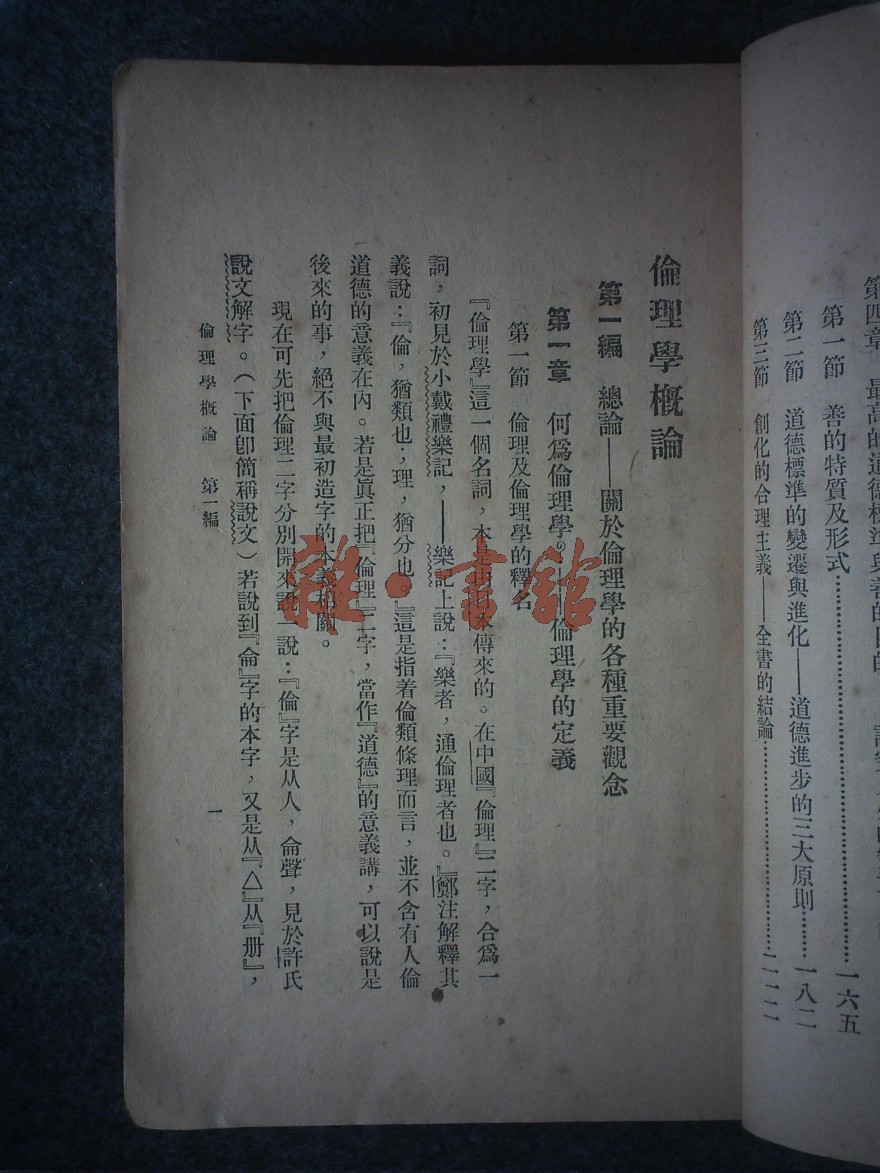 第一節　善的特質及形式……一六五
第二節　道德標準的變遷與進化——道德進步的三大原則……一八二
第三節　創化的合理主義——全書的結論……二一二
倫理學槪論
第一編　總論——關於倫理學的各種重要觀念
第一章　何爲倫理學。——倫理學的定義
第一節　倫理及倫理學的釋名
『倫理學』這一個名詞，本是由日本傳來的。在中國『倫理』二字，合爲一
詞，初見於小戴禮樂記，——樂記上說：『樂者，通倫理者也。』鄭注解釋其
義說：『倫，猶類也；理，猶分也。』這是指着倫類條理而言，並不含有人倫
道德的意義在內。若是眞正把『倫理』二字，當作『道德』的意義講，可以說是
後來的事，絕不與最初造字的本義相關。
現在可先把倫理二字分別開來說一說：『倫』字是从人，侖聲，見於許氏
說文解字。（下面卽簡稱說文）若說到『侖』字的本字，又是从『亼』从『册』，
倫理學槪論　第一編
一
雜·書館